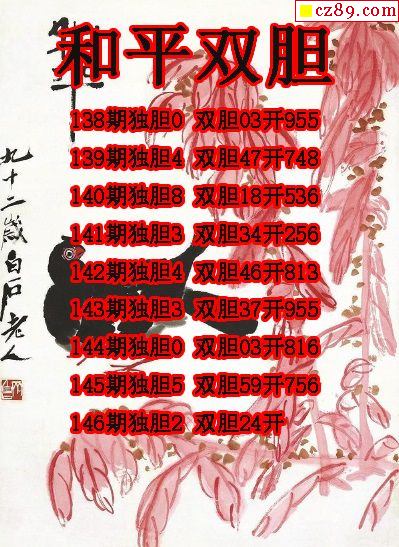 cz89.com
和平双胆
138期独胆0 双胆03开955
139期独胆4 双胆47开748
140期独胆8 双胆18开536
141期独胆3 双胆34开256
142期独胆4 双胆46开813
143期独胆3 双胆37开955
144期独胆0 双胆03开816
145期独胆5 双胆59开756
146期独胆2 双胆24开
九十二岁白石老人